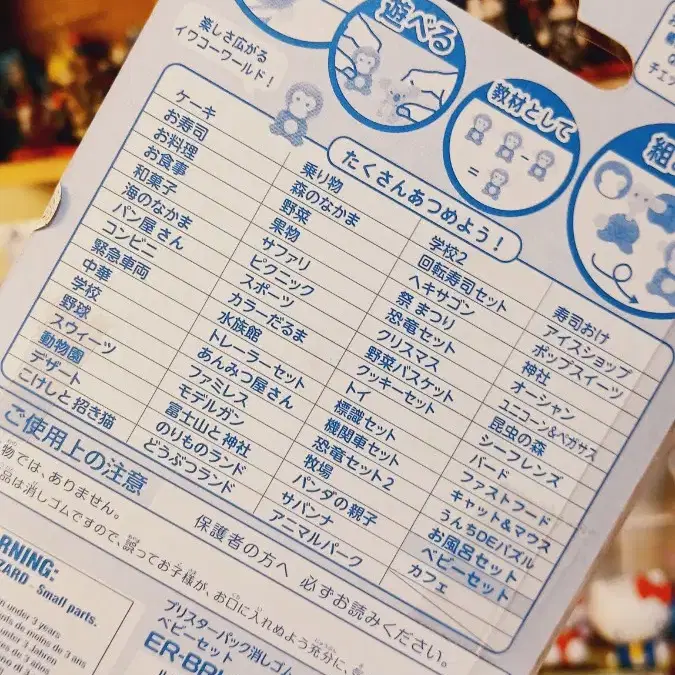 楽しさ広がる
イワコーワールド！
遊べる
教材として
組
チェッ
たくさんあつめよう！
ケーキ
お寿司
お料理
お食事
和菓子
海のなかま
パン屋さん
コンビニ
緊急車両
中華
学校
野球
スウィーツ
動物園
デザート
こけしと招き猫
乗り物
森のなかま
野菜
果物
サファリ
ピクニック
スポーツ
カラーだるま
水族館
トレーラーセット
あんみつ屋さん
ファミレス
モデルガン
富士山と神社
のりものランド
どうぶつランド
学校2
回転寿司セット
ヘキサゴン
祭まつり
恐竜セット
クリスマス
野菜バスケット
クッキーセット
トイ
標識セット
機関車セット
恐竜セット2
牧場
パンダの親子
サバンナ
アニマルパーク
寿司おけ
アイスショップ
ポップスイーツ
神社
オーシャン
ユニコーン&ペガサス
昆虫の森
シーフレンズ
バード
ファストフード
キャット&マウス
うんちDEパズル
お風呂セット
ベビーセット
カフェ
ご使用上の注意
保護者の方へ 必ずお読みください。
物では、ありません。
品は消しゴムですので、誤ってお子様が、お口に入れぬよう充分に、
RNING:
ZARD - Small parts.
en under 3 years
nts de moins de 3 ans
under 3 Jahren
es de 3 años
ブリスターパック消しゴム
ベビーセット
ER-BRI